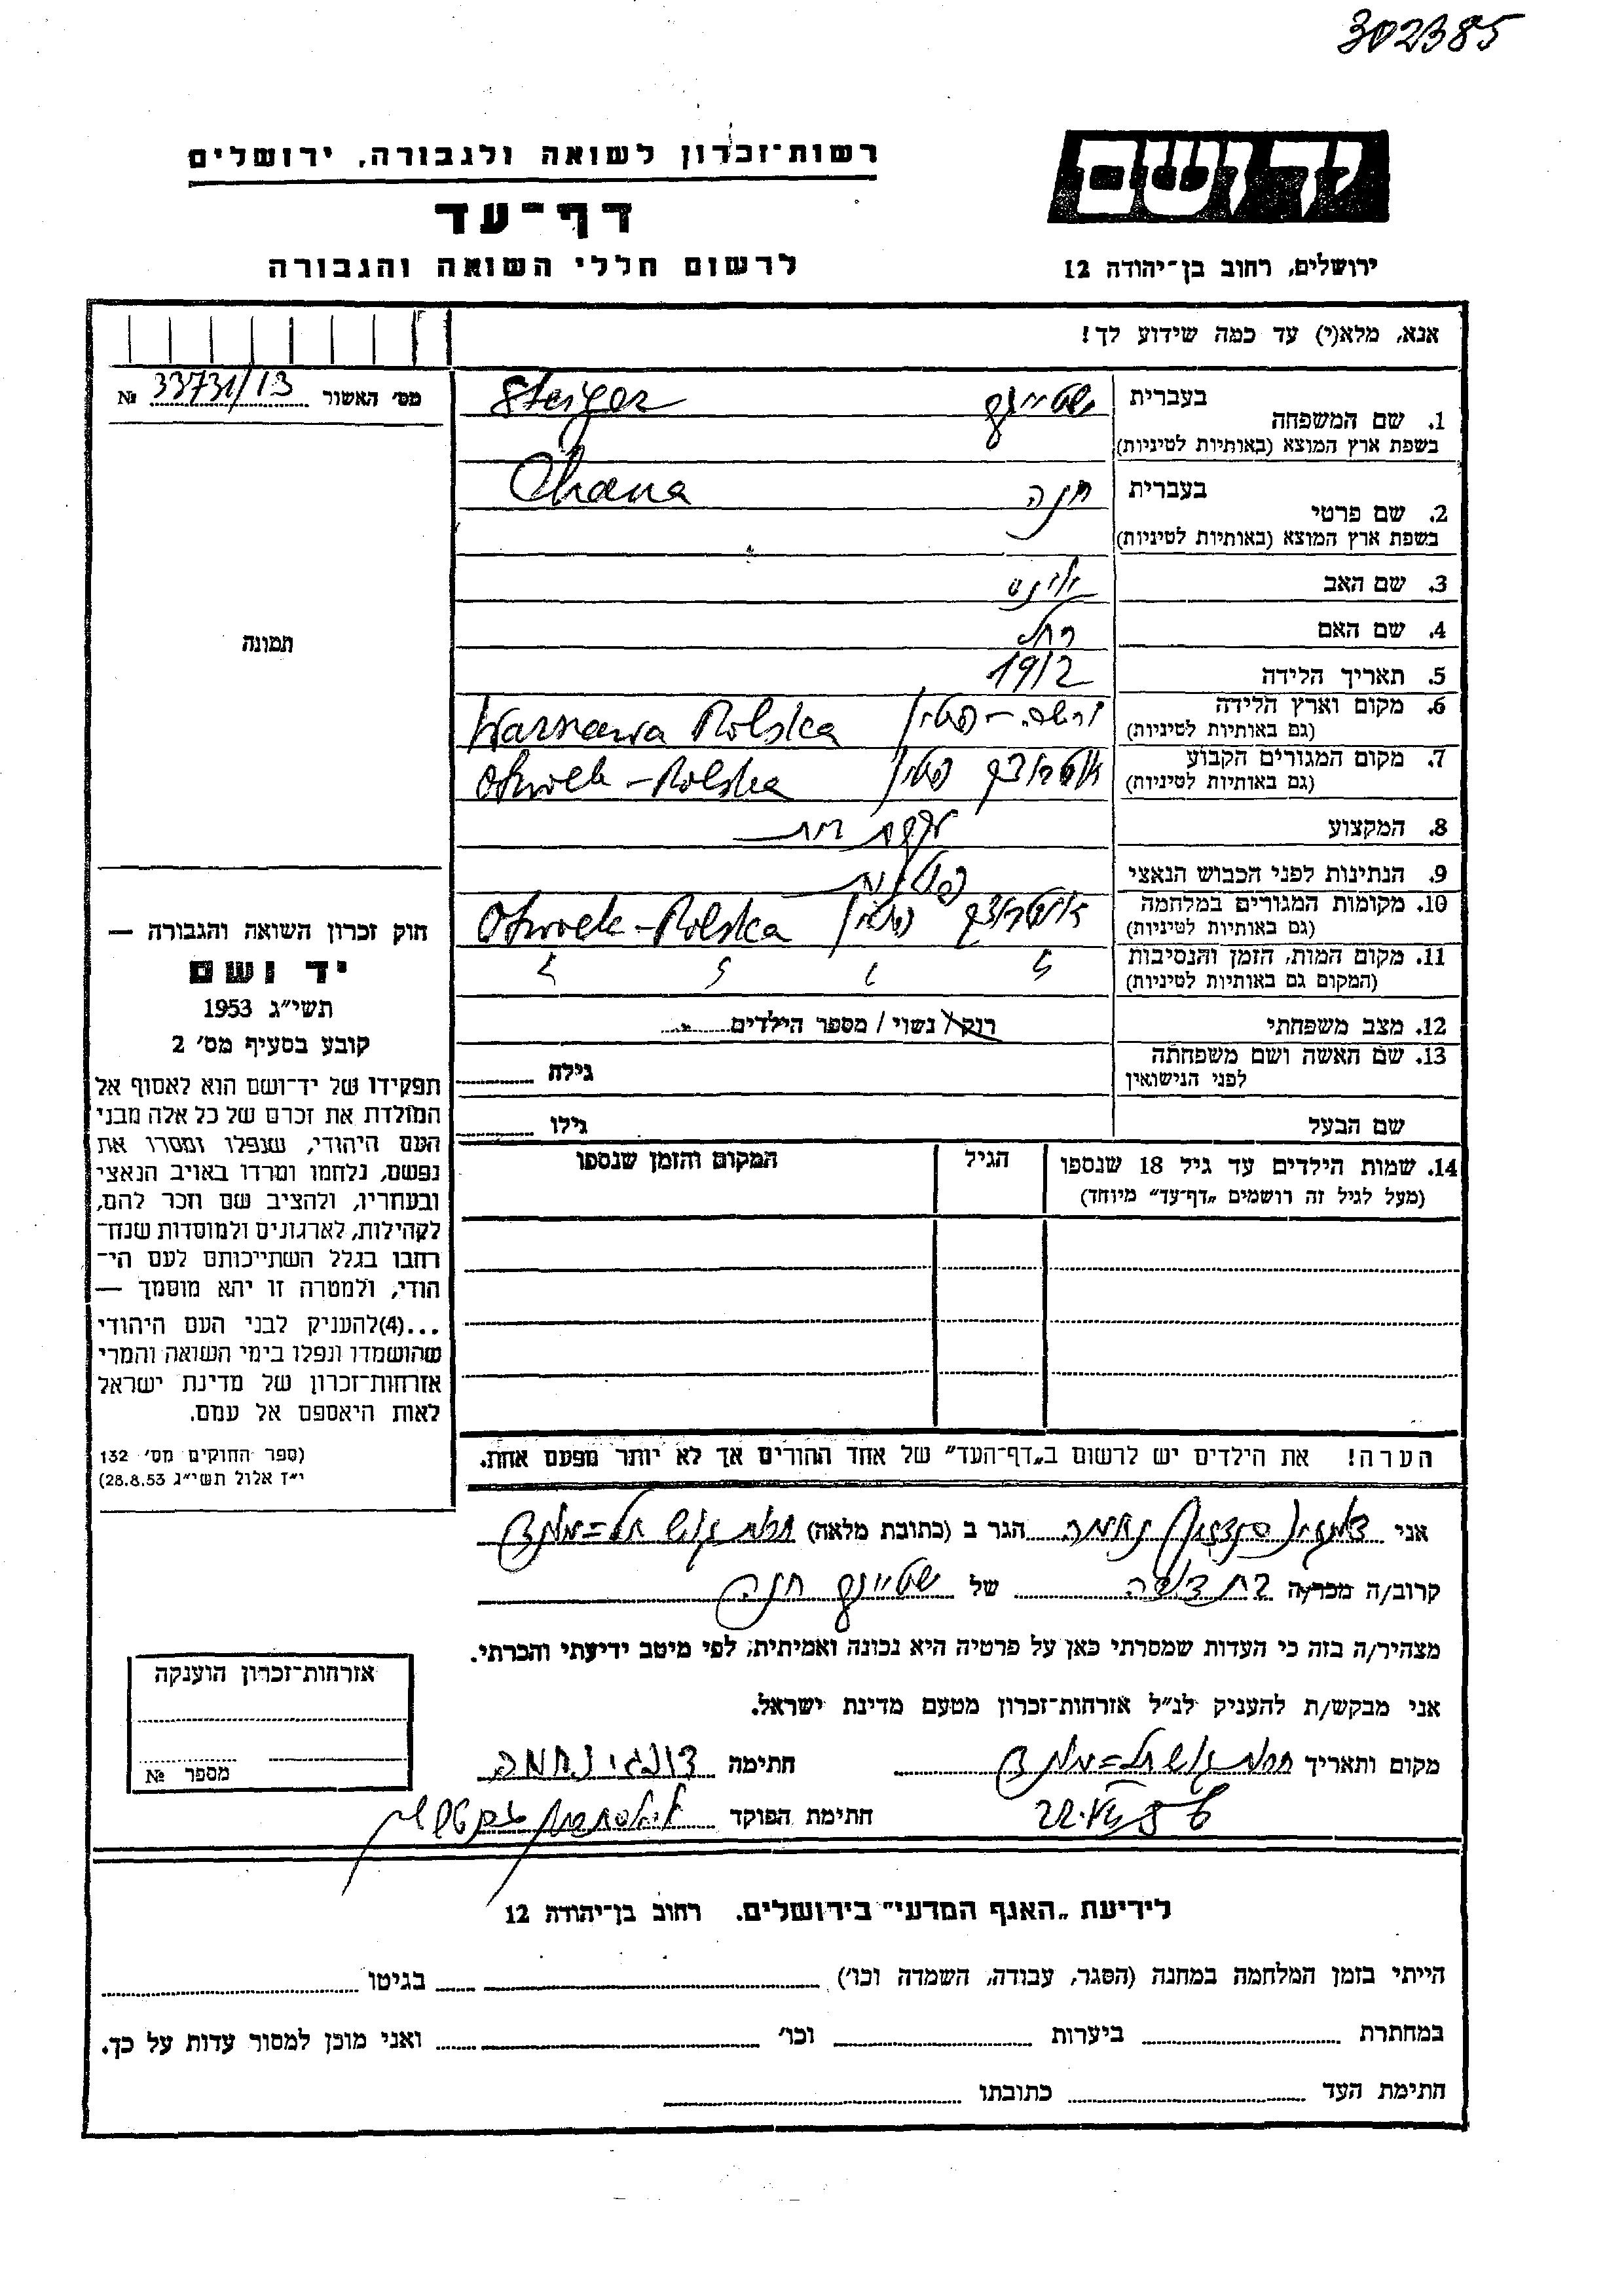 302385
רשות־זכרון לשואה ולגבורה, ירושלים
דף־עד
לרשום חללי השואה והגבורה
יד ושם
ירושלים, רחוב בן־יהודה 12
אנא, מלא(י) עד כמה שידוע לך!
מס׳ האשור 33731/13 №
1. שם המשפחה
בעברית Steiger
בשפת ארץ המוצא (באותיות לטיניות)
2. שם פרטי
בעברית חנה Chana
בשפת ארץ המוצא (באותיות לטיניות)
3. שם האב
4. שם האם רחל
5. תאריך הלידה 1912
6. מקום וארץ הלידה ורשה - פולין Warszawa Polska
(גם באותיות לטיניות)
7. מקום המגורים הקבוע אוטבוצק פולין Otwock - Polska
(גם באותיות לטיניות)
8. המקצוע
9. הנתינות לפני הכבוש הנאצי פולנית
10. מקומות המגורים במלחמה אוטבוצק פולין Otwock - Polska
(גם באותיות לטיניות)
11. מקום המות, הזמן והנסיבות
(המקום גם באותיות לטיניות)
12. מצב משפחתי רוק / נשוי / מספר הילדים
13. שם האשה ושם משפחתה
לפני הנישואין גילה
שם הבעל גילו
14. שמות הילדים עד גיל 18 שנספו
(מעל לגיל זה רושמים „דף־עד” מיוחד)
הגיל
המקום והזמן שנספו
הערה! את הילדים יש לרשום ב„דף־העד” של אחד ההורים אך לא יותר מפעם אחת.
תמונה
חוק זכרון השואה והגבורה —
יד ושם
תשי״ג 1953
קובע בסעיף מס׳ 2
תפקידו של יד־ושם הוא לאסוף אל
המולדת את זכרם של כל אלה מבני
העם היהודי, שנפלו ומסרו את
נפשם, נלחמו ומרדו באויב הנאצי
ובעוזריו, ולהציב שם וזכר להם,
לקהילות, לארגונים ולמוסדות שנח־
רבו בגלל השתייכותם לעם הי־
הודי, ולמטרה זו יהא מוסמך —
...(4)להעניק לבני העם היהודי
שהושמדו ונפלו בימי השואה והמרי
אזרחות־זכרון של מדינת ישראל
לאות היאספם אל עמם.
(ספר החוקים מס׳ 132
י״ז אלול תשי״ג 28.8.53)
אני נחמה הגר ב (כתובת מלאה)
קרוב/ה מכר/ה בת דודה של חנה
מצהיר/ה בזה כי העדות שמסרתי כאן על פרטיה היא נכונה ואמיתית, לפי מיטב ידיעתי והכרתי.
אני מבקש/ת להעניק לנ״ל אזרחות־זכרון מטעם מדינת ישראל.
מקום ותאריך חתימה נחמה
חתימת הפוקד
אזרחות־זכרון הוענקה
מספר №
לידיעת „האגף המדעי” בירושלים. רחוב בן־יהודה 12
הייתי בזמן המלחמה במחנה (הסגר, עבודה, השמדה וכו׳) בגיטו
במחתרת ביערות וכו׳ ואני מוכן למסור עדות על כך.
חתימת העד כתובתו